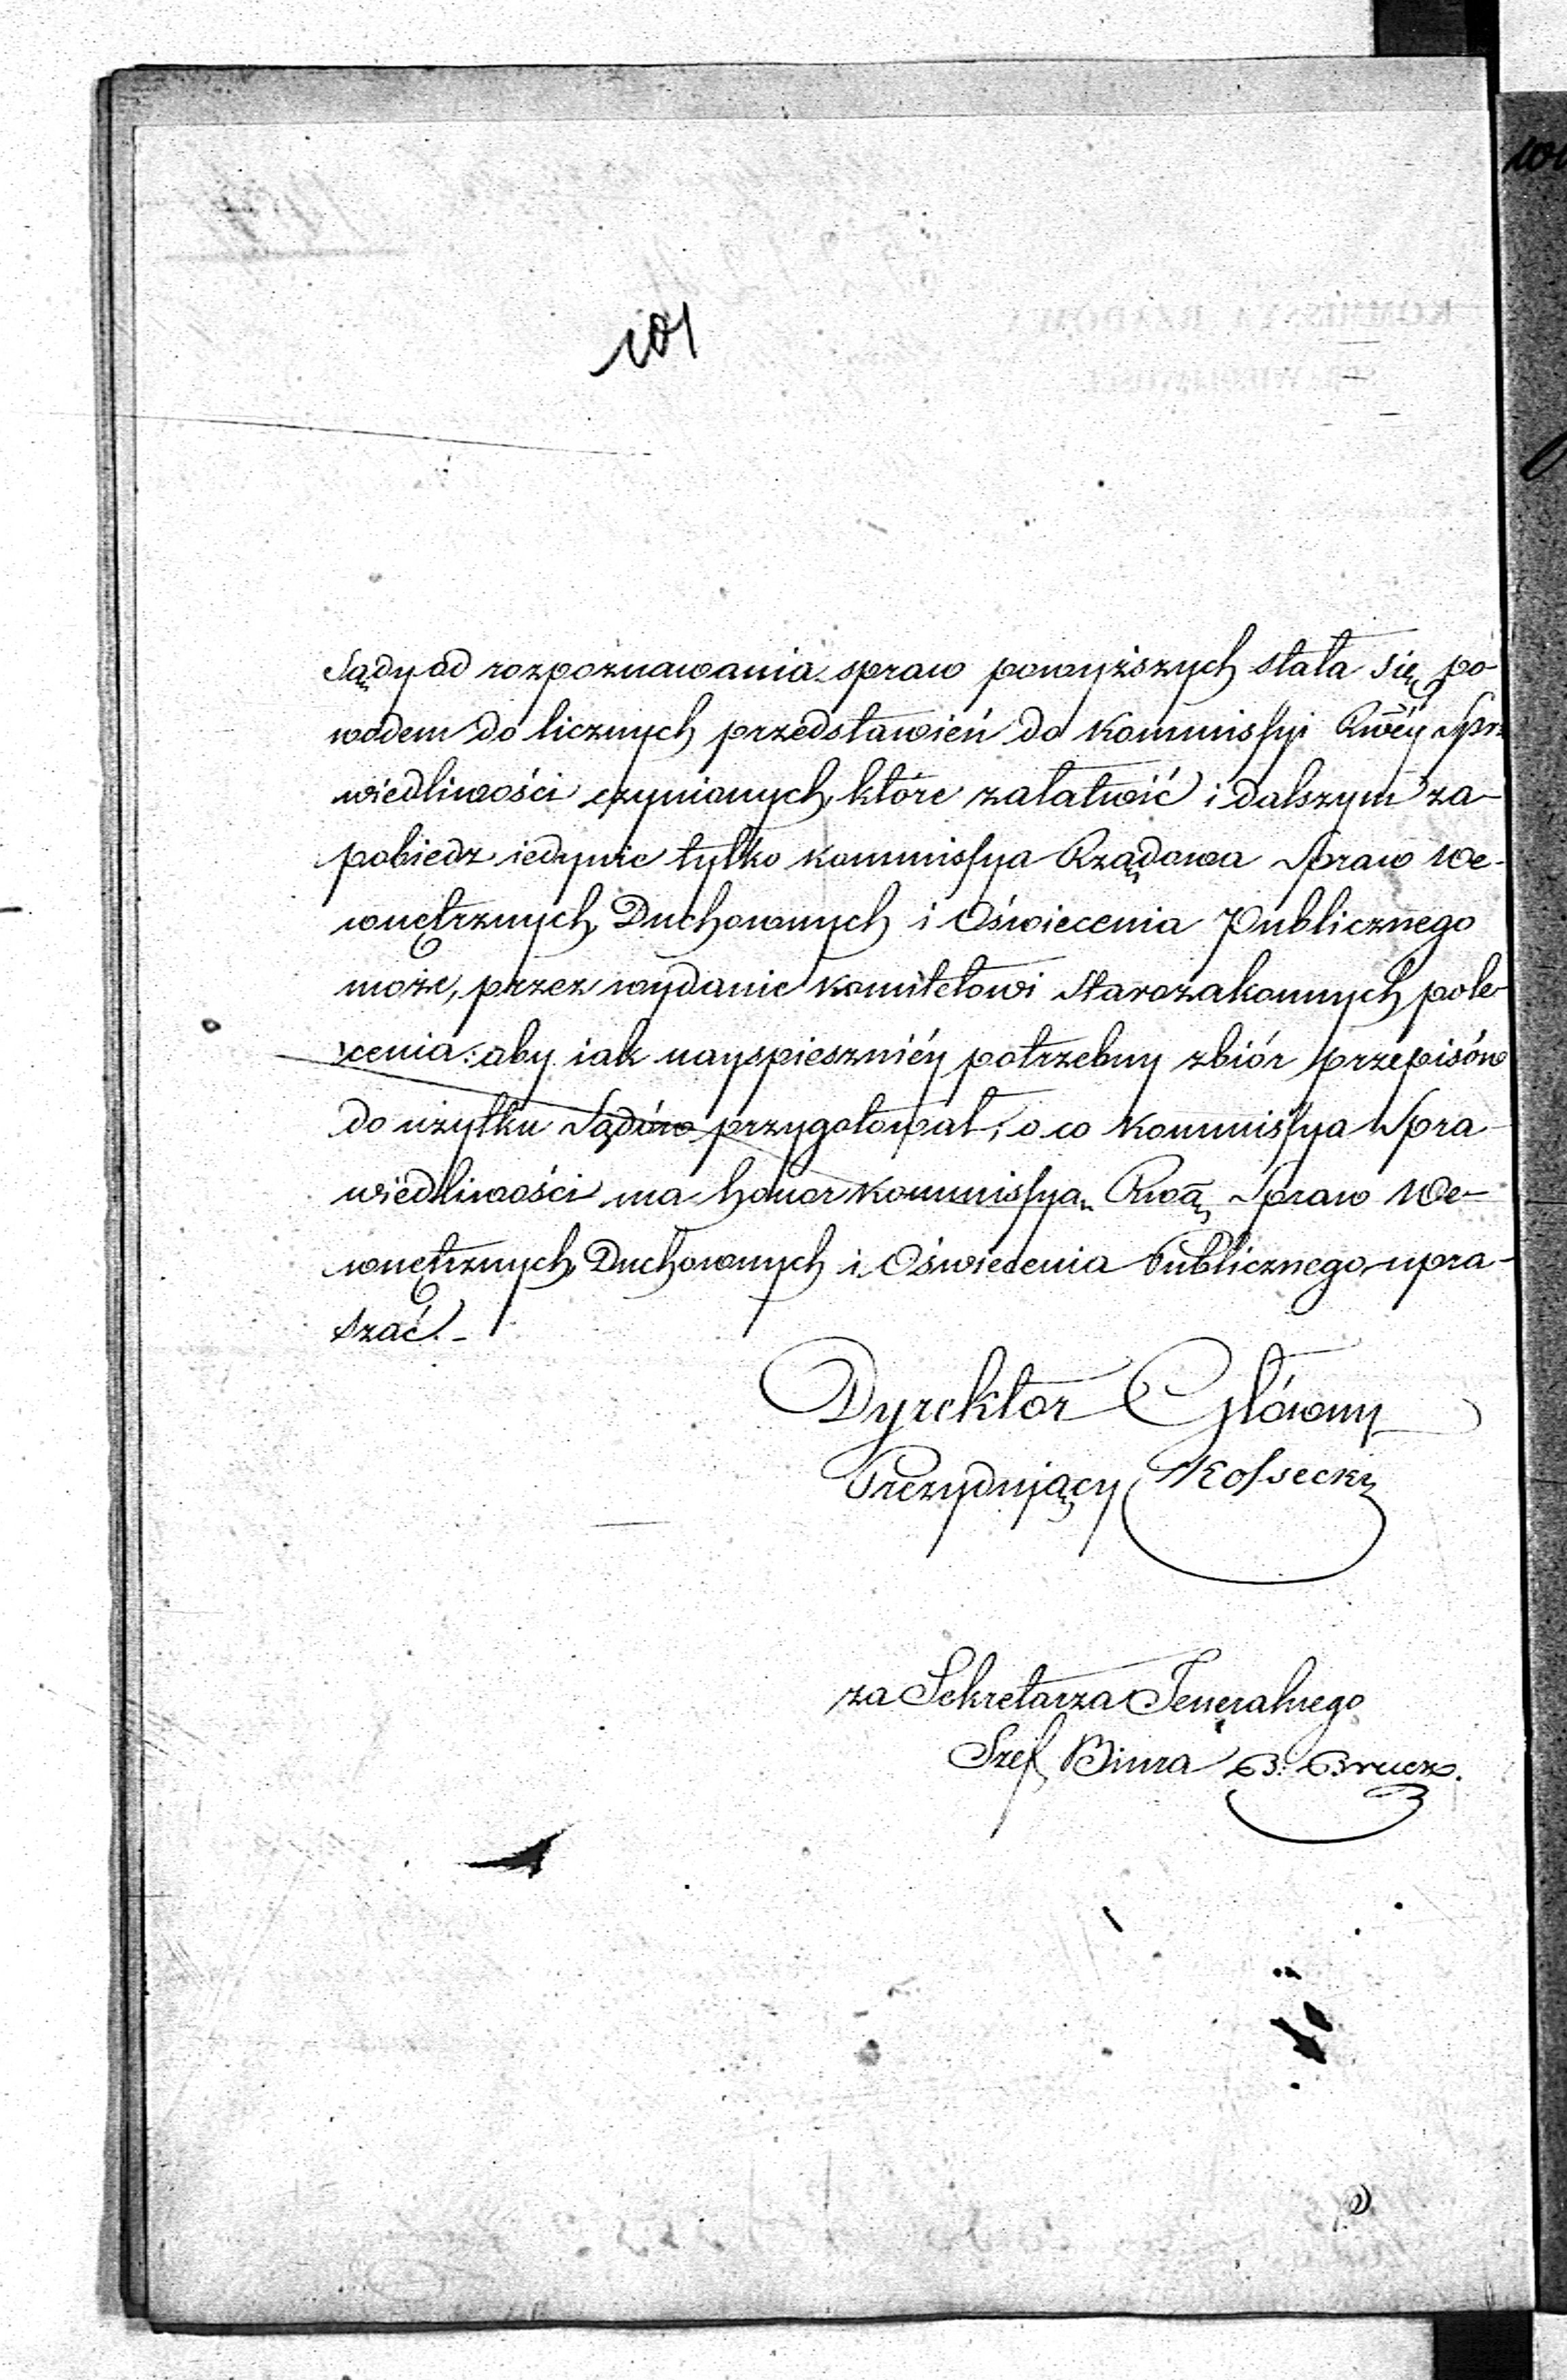 101
Sądy od rozpoznawania spraw powyższych stała się po-
wodem do licznych przedstawień do Kommissyi Rwéy Spra
wiedliwości czynionych, które załatwić i dalszym za-
pobiedz iedynie tylko Kommissya Rządowa Spraw We-
wnętrznych Duchownych i Oświecenia Publicznego
może, przez wydanie Komitetowi Starozakonnych pole-
cenia: aby iak nayspieszniéy potrzebny zbiór przepisów
do użytku Sądów przygotował, o co Kommissya Spra-
wiedliwości ma honor Kommissyą Rwą Spraw We-
wnętrznych Duchownych i Oświecenia Publicznego upra-
szać. -
Dyrektor Główny
Prezydujący Kossecki
za Sekretarza Jeneralnego
Szef Biura B.